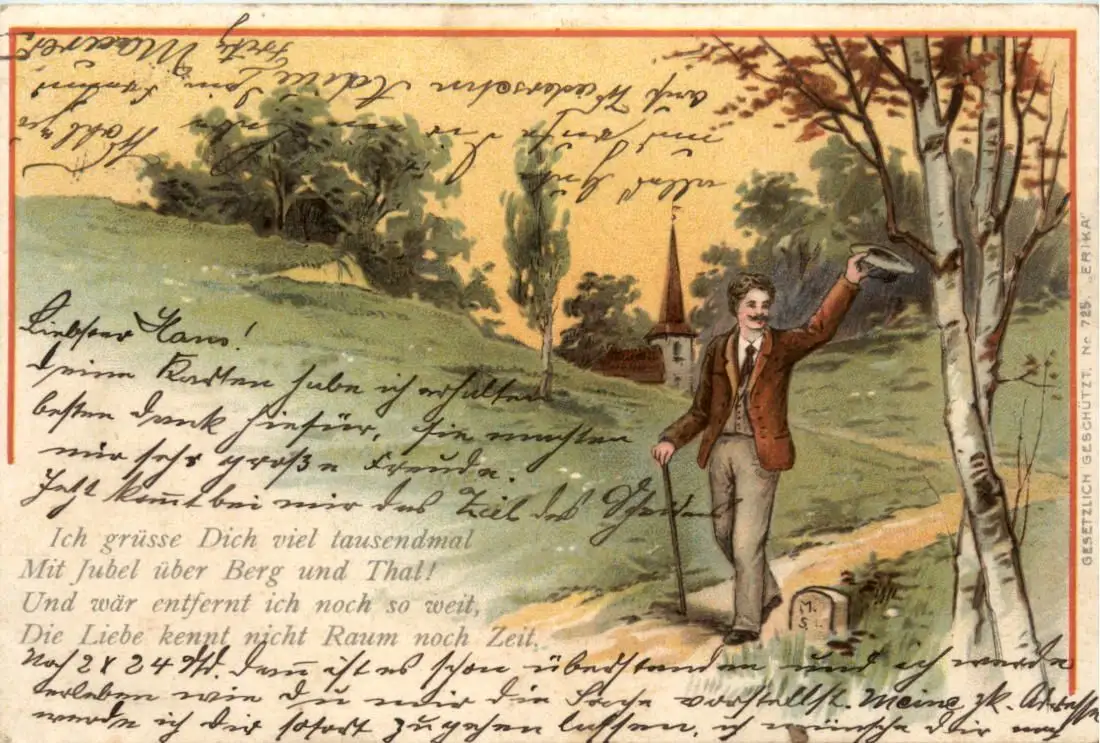 Liebster Hans!
Deine Karten habe ich erhalten
besten Dank hiefür, sie machten
mir sehr große Freude.
Jetzt kommt bei mir das Ziel des Scheidens
Ich grüsse Dich viel tausendmal
Mit Jubel über Berg und Thal!
Und wär entfernt ich noch so weit,
Die Liebe kennt nicht Raum noch Zeit.
Noch 2 x 24 Std. dann ist es schon überstanden und ich werde
erleben wie Du mir die Sache vorstellst. Meine zk. Adresse
werde ich Dir sofort zugehen lassen, ich wünsche Dir noch
alles Gute
und
auf Wiedersehn Adieu Dein Freund
Fritz
M.
S.
GESETZLICH GESCHÜTZT. No 725. „ERIKA"